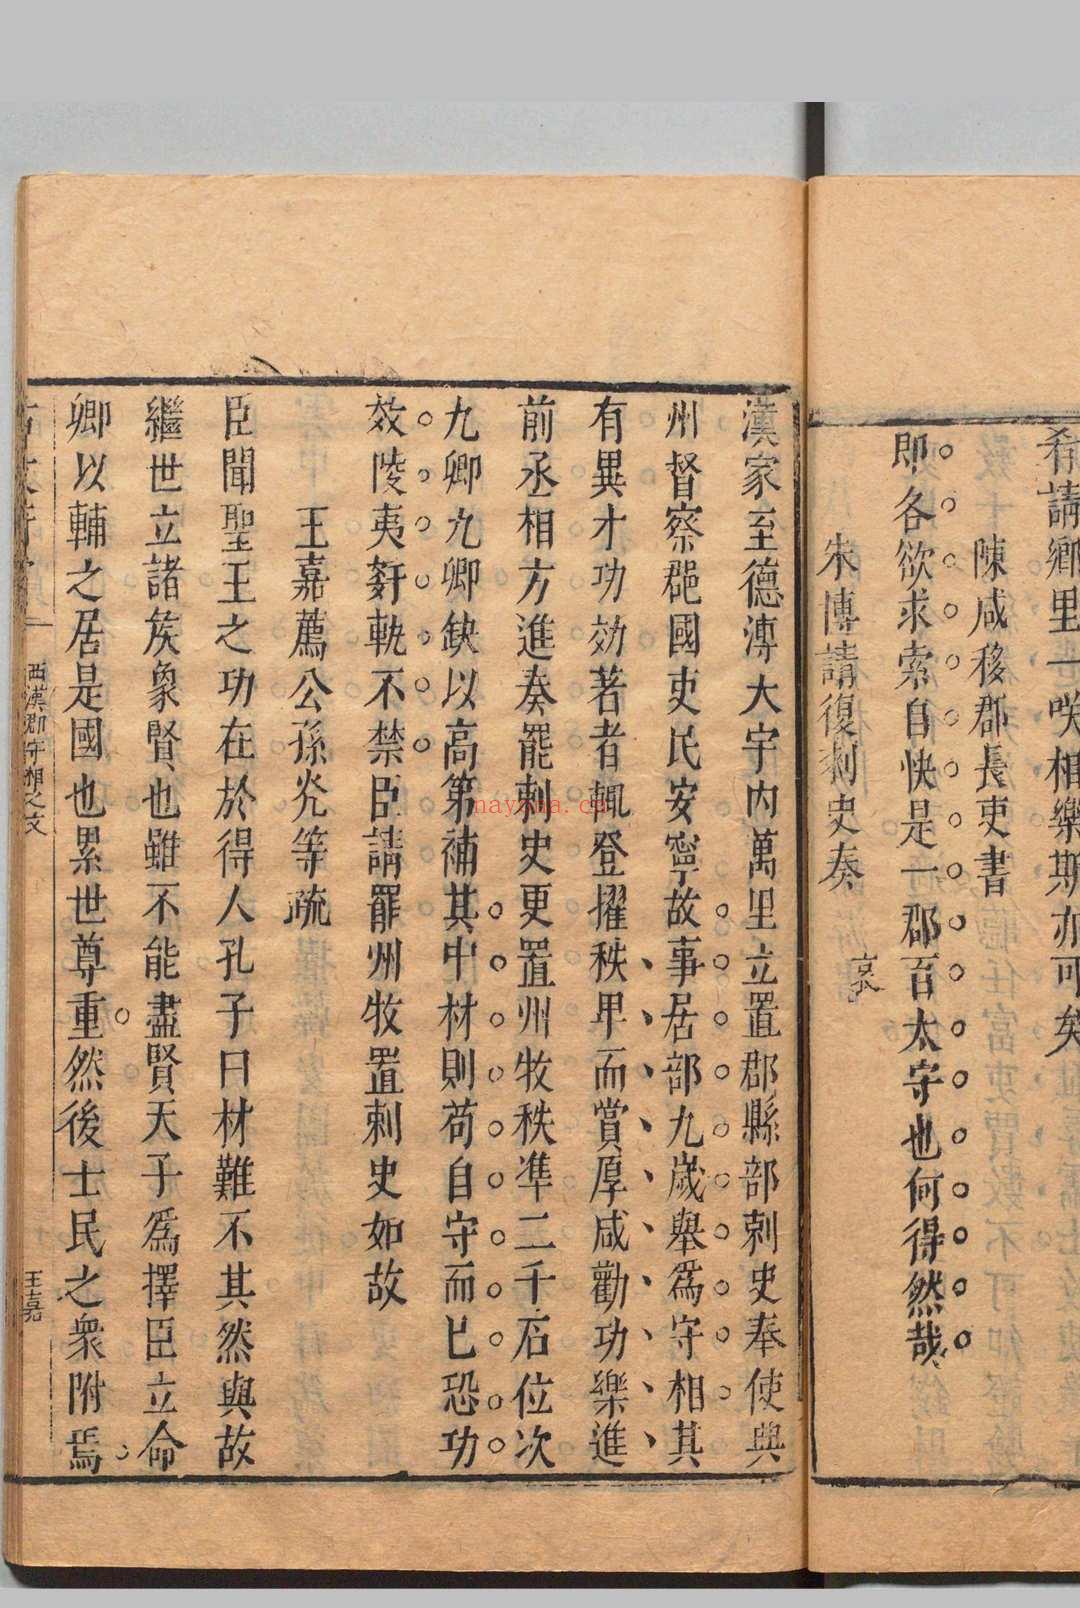 肴請鄰里一咲相樂斯亦可矣
陳咸移郡長吏書
即各欲求索自快是一郡百太守也何得然哉
朱博請復刺史奏 哀
漢家至德溥大宇内萬里立置郡縣部刺史奉使典
州督察郡國吏民安寧故事居部九歲舉爲守相其
有異才功効著者輒登擢秩卑而賞厚咸勸功樂進
前丞相方進奏罷刺史更置州牧秩準二千石位次
九卿九卿缺以高第補其中材則苟自守而已恐功
效陵夷姧軌不禁臣請罷州牧置刺史如故
王嘉薦公孫光等疏
臣聞聖王之功在於得人孔子曰材難不其然與故
繼世立諸侯象賢也雖不能盡賢天子爲擇臣立命
卿以輔之居是國也累世尊重然後士民之衆附焉
西漢郡守相之文
王嘉
nayona.cn